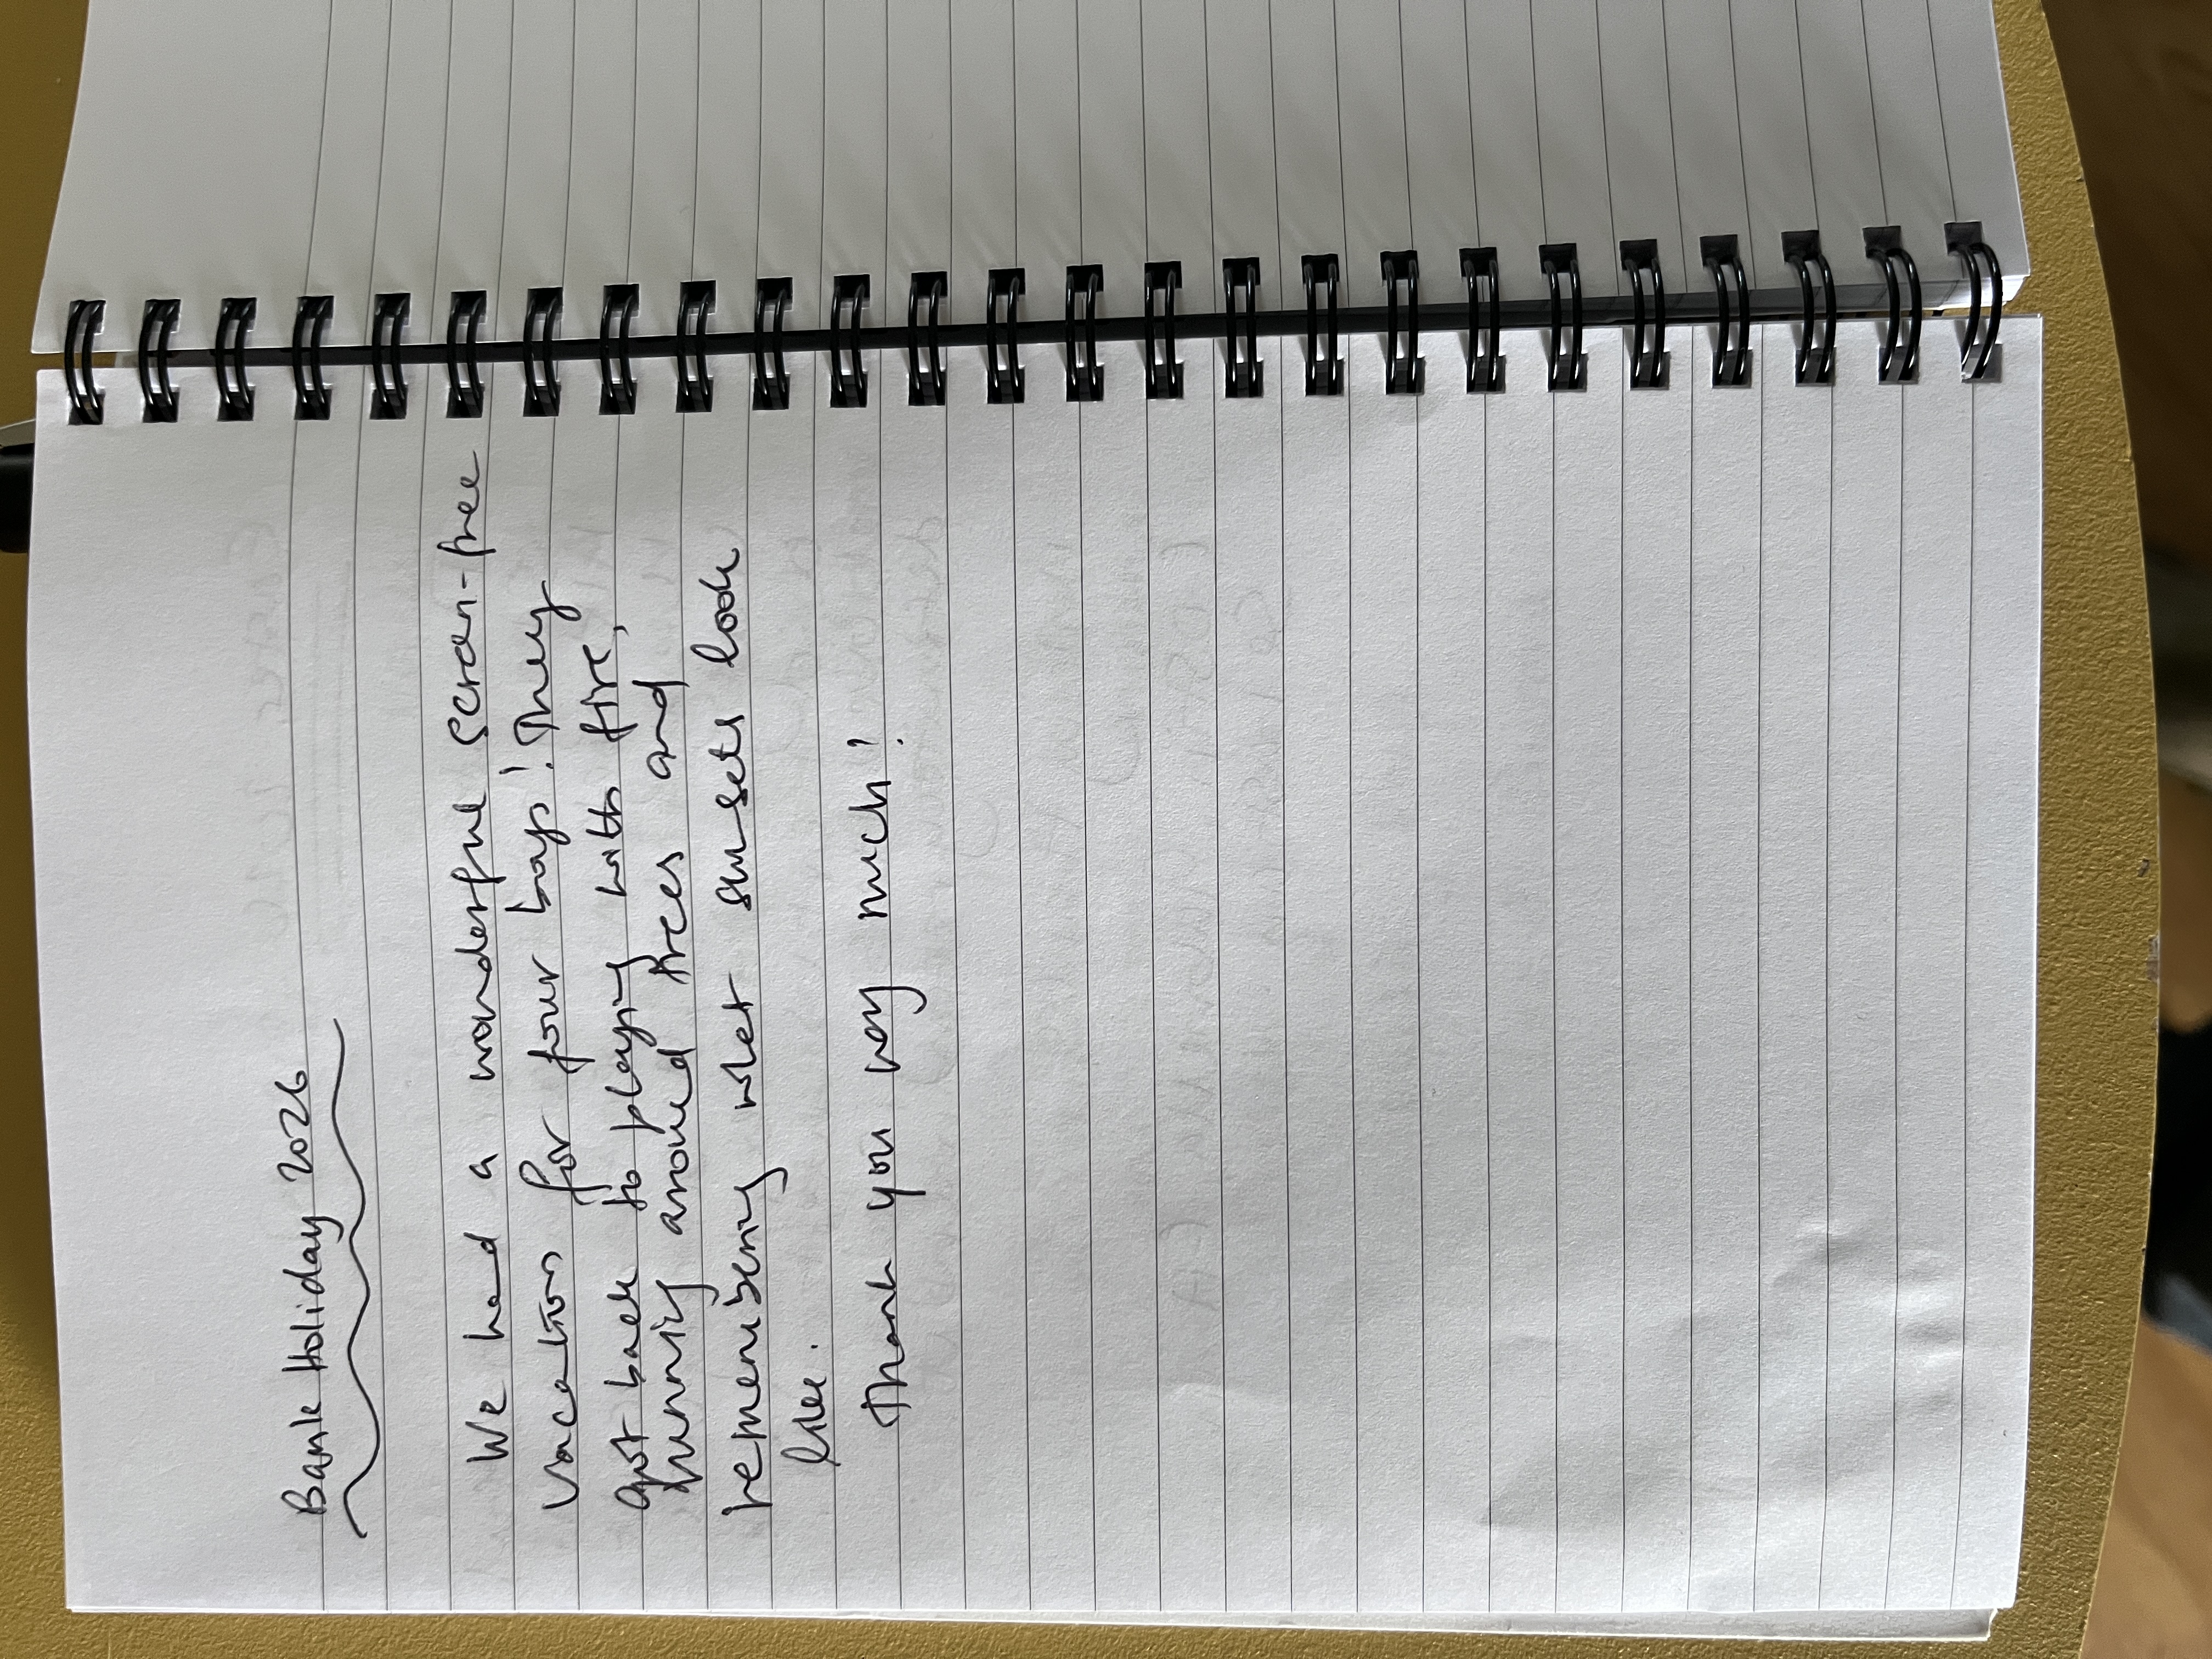 Bank Holiday 2026
We had a wonderful screen-free
vacation for four boys! They
got back to playing with fire,
running around trees and
remembering what sunsets look
like.
Thank you very much!